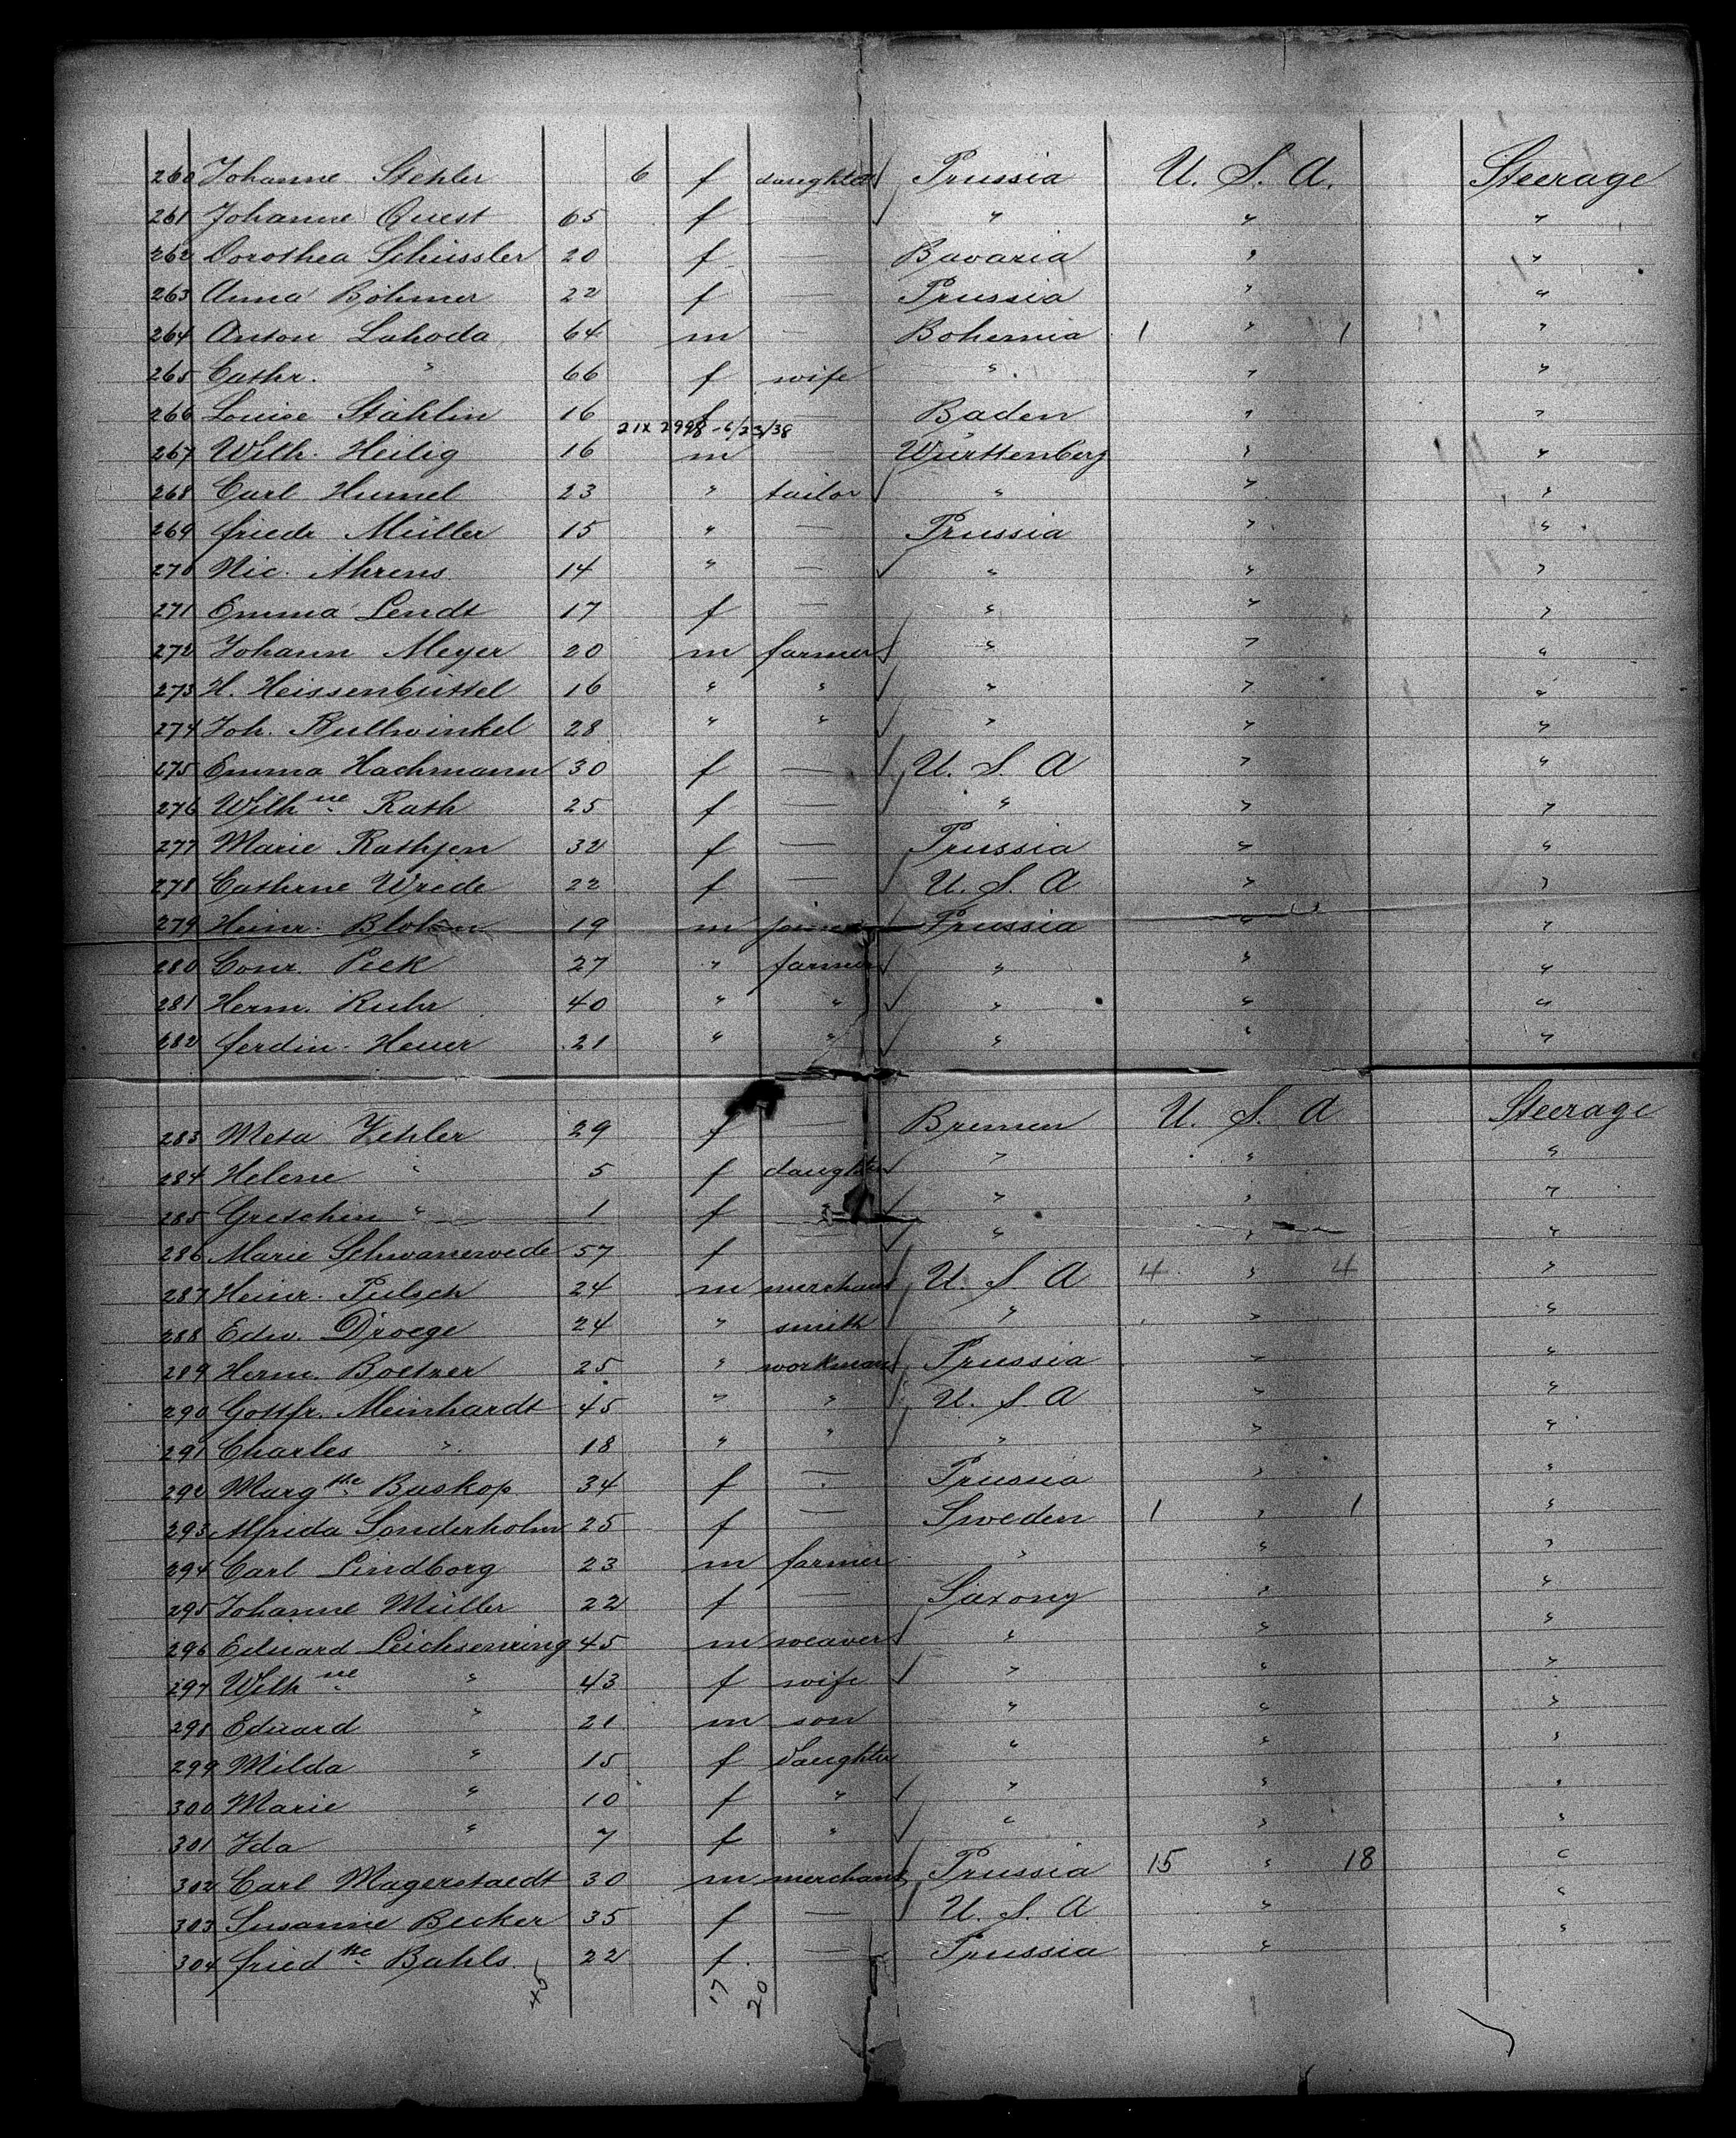 260 Johanne Stehler 6 f daughter Prussia U. S. A. Steerage
261 Johanne Quest 65 f — " " "
262 Dorothea Schüssler 20 f — Bavaria " "
263 Anna Böhmer 22 f — Prussia " "
264 Anton Lahoda 64 m — Bohemia 1 " 1 "
265 Cathr. " 66 f wife " " "
266 Louise Stählin 16 f — Baden " "
21X 2998 - 6/23/38
267 Wilh. Heilig 16 m — Württenberg " "
268 Carl Humel 23 " tailor " " "
269 friedr Müller 15 " — Prussia " "
270 Nic. Ahrens 14 " — " " "
271 Emma Lendt 17 f — " " "
272 Johann Meyer 20 m farmer " " "
273 H. Heissenbüttel 16 " " " " "
274 Joh. Bullwinkel 28 " " " " "
275 Emma Hachmann 30 f — U. S. A " "
276 Wilh ne Rath 25 f — " " "
277 Marie Rathjen 32 f — Prussia " "
278 Cathrne Wrede 22 f — U. S. A " "
279 Heinr. Blohm 19 m joiner Prussia " "
280 Conr. Peek 27 " farmer " " "
281 Herm. Ruhr 40 " " " " "
282 ferdin. Heuer 21 " " " " "
283 Meta Zehler 29 f — Bremen U. S. A Steerage
284 Helene " 5 f daughter " " "
285 Gretchen " 1 f " " " "
286 Marie Schwanewede 57 f — " " "
287 Heinr. Pulsch 24 m merchant U. S. A 4 " 4 "
288 Edw. Droege 24 " smith " " "
289 Herm. Boetzer 25 " workman Prussia " "
290 Gottfr. Meinhardt 45 " " U. S. A " "
291 Charles " 18 " " " " "
292 Marg the Buskop 34 f — Prussia " "
293 Alfrida Sonderholm 25 f — Sweden 1 " 1 "
294 Carl Lindborg 23 m farmer " " "
295 Johanne Müller 22 f — Saxony " "
296 Eduard Leichsenring 45 m weaver " " "
297 Wilh ne " 43 f wife " " "
298 Eduard " 21 m son " " "
299 Milda " 15 f daughter " " "
300 Marie " 10 f " " " "
301 Ida " 7 f " " " "
302 Carl Magerstaedt 30 m merchant Prussia 15 " 18 "
303 Susanne Becker 35 f — U. S. A " "
304 fried ke Bahls 22 f — Prussia " "
45 17 20